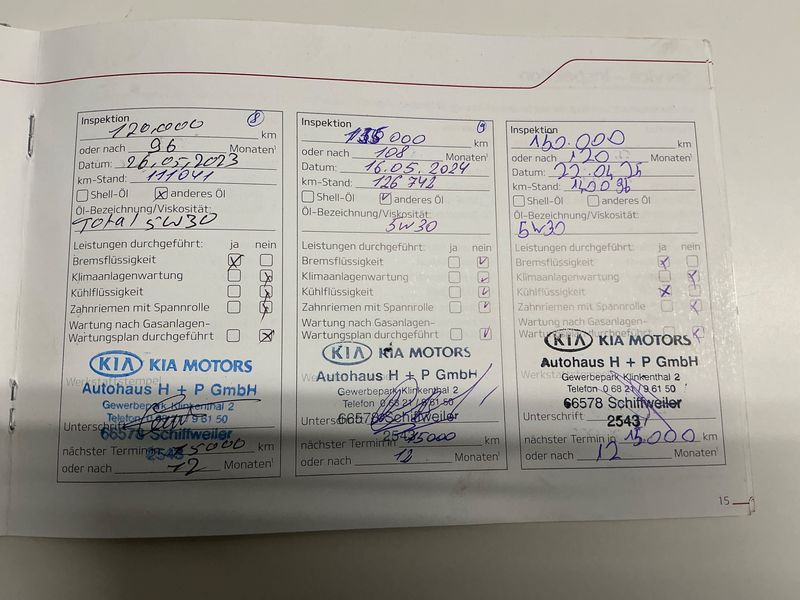 Inspektion 8
120.000 km
oder nach 96 Monaten¹
Datum: 26.05.2023
km-Stand: 111041
Shell-Öl x anderes Öl
Öl-Bezeichnung/Viskosität:
Total 5W30
Leistungen durchgeführt: ja nein
Bremsflüssigkeit x
Klimaanlagenwartung x
Kühlflüssigkeit x
Zahnriemen mit Spannrolle x
Wartung nach Gasanlagen-
Wartungsplan durchgeführt x
KIA KIA MOTORS
Werkstattstempel
Autohaus H + P GmbH
Gewerbepark Klinkenthal 2
Telefon 0 68 21 / 9 61 50
Unterschrift
66578 Schiffweiler
2543
nächster Termin in 15000 km
oder nach 12 Monaten¹
Inspektion 9
135000 km
oder nach 108 Monaten¹
Datum: 16.05.2024
km-Stand: 126742
Shell-Öl anderes Öl
Öl-Bezeichnung/Viskosität:
5W30
Leistungen durchgeführt: ja nein
Bremsflüssigkeit
Klimaanlagenwartung
Kühlflüssigkeit
Zahnriemen mit Spannrolle
Wartung nach Gasanlagen-
Wartungsplan durchgeführt
KIA KIA MOTORS
Autohaus H + P GmbH
Gewerbepark Klinkenthal 2
Telefon 0 68 21 / 9 61 50
66578 Schiffweiler
Unterschrift
2543
nächster Termin in 15000 km
oder nach 12 Monaten¹
Inspektion
150.000 km
oder nach 120 Monaten¹
Datum: 22.04.25
km-Stand: 140096
Shell-Öl anderes Öl
Öl-Bezeichnung/Viskosität:
5W30
Leistungen durchgeführt: ja nein
Bremsflüssigkeit x
Klimaanlagenwartung x
Kühlflüssigkeit x
Zahnriemen mit Spannrolle x
Wartung nach Gasanlagen-
Wartungsplan durchgeführt x
KIA KIA MOTORS
Autohaus H + P GmbH
Gewerbepark Klinkenthal 2
Telefon 0 68 21 / 9 61 50
66578 Schiffweiler
Unterschrift
2543
nächster Termin in 15.000 km
oder nach 12 Monaten¹
15